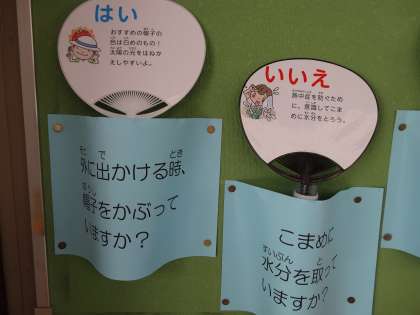 はい
おすすめの帽子の
色は白めのもの！
太陽の光をはねか
えしやすいよ。
外に出かける時、
帽子をかぶって
いますか？
いいえ
熱中症を防ぐため
に、意識してこま
めに水分をとろう。
こまめに
水分を取って
いますか？